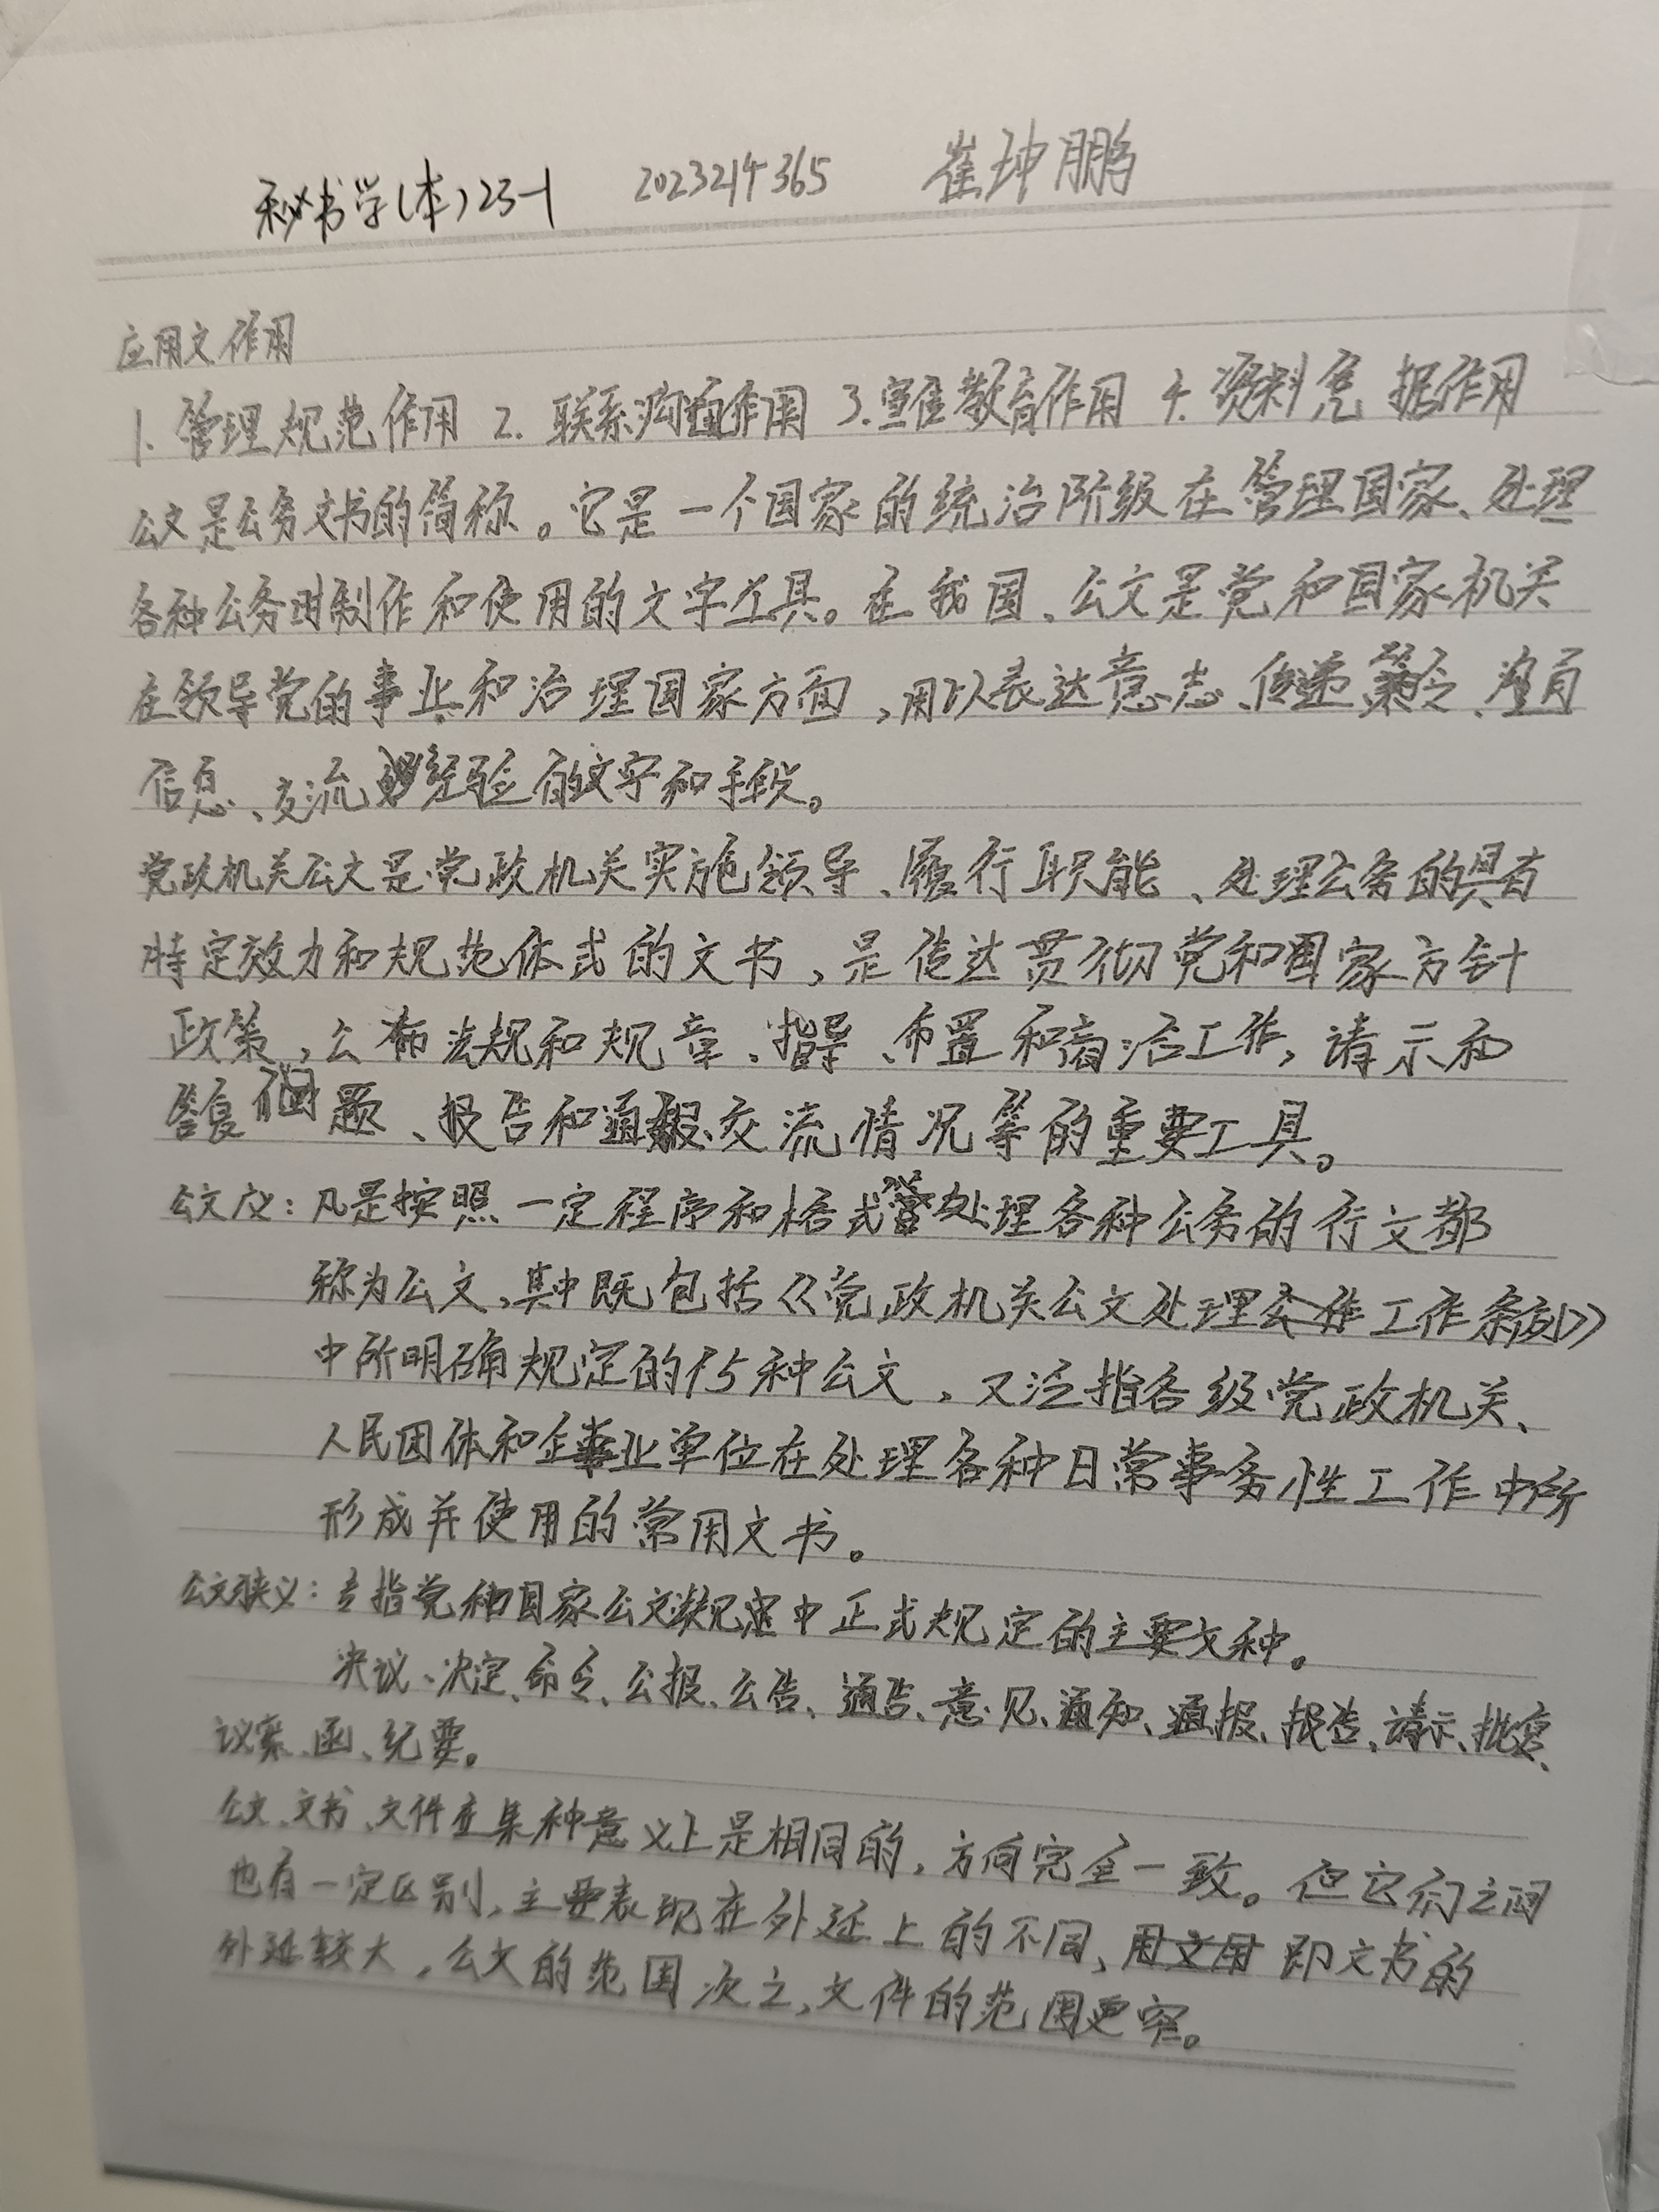 秘书学(本)23-1 2023214365 崔珅鹏
应用文作用
1. 管理规范作用 2. 联系沟通作用 3. 宣传教育作用 4. 资料凭据作用
公文是公务文书的简称。它是一个国家的统治阶级在管理国家、处理
各种公务时制作和使用的文字工具。在我国、公文是党和国家机关
在领导党的事业和治理国家方面,用以表达意志、传递策令、
信息、交流经验的文字和手段。
党政机关公文是党政机关实施领导、履行职能、处理公务的具有
特定效力和规范体式的文书,是传达贯彻党和国家方针
政策,公布法规和规章、指导、布置和商洽工作,请示和
答复问题、报告和通报交流情况等的重要工具。
公文广义:凡是按照一定程序和格式处理各种公务的行文都
称为公文,其中既包括《党政机关公文处理工作条例》
中所明确规定的15种公文,又泛指各级党政机关、
人民团体和企事业单位在处理各种日常事务性工作中所
形成并使用的常用文书。
公文狭义:专指党和国家公文规定中正式规定的主要文种。
决议、决定、命令、公报、公告、通告、意见、通知、通报、报告、请示、批复、
议案、函、纪要。
公文、文书、文件在某种意义上是相同的,方向完全一致。但它们之间
也有一定区别,主要表现在外延上的不同、即文书的
外延较大,公文的范围次之,文件的范围更窄。